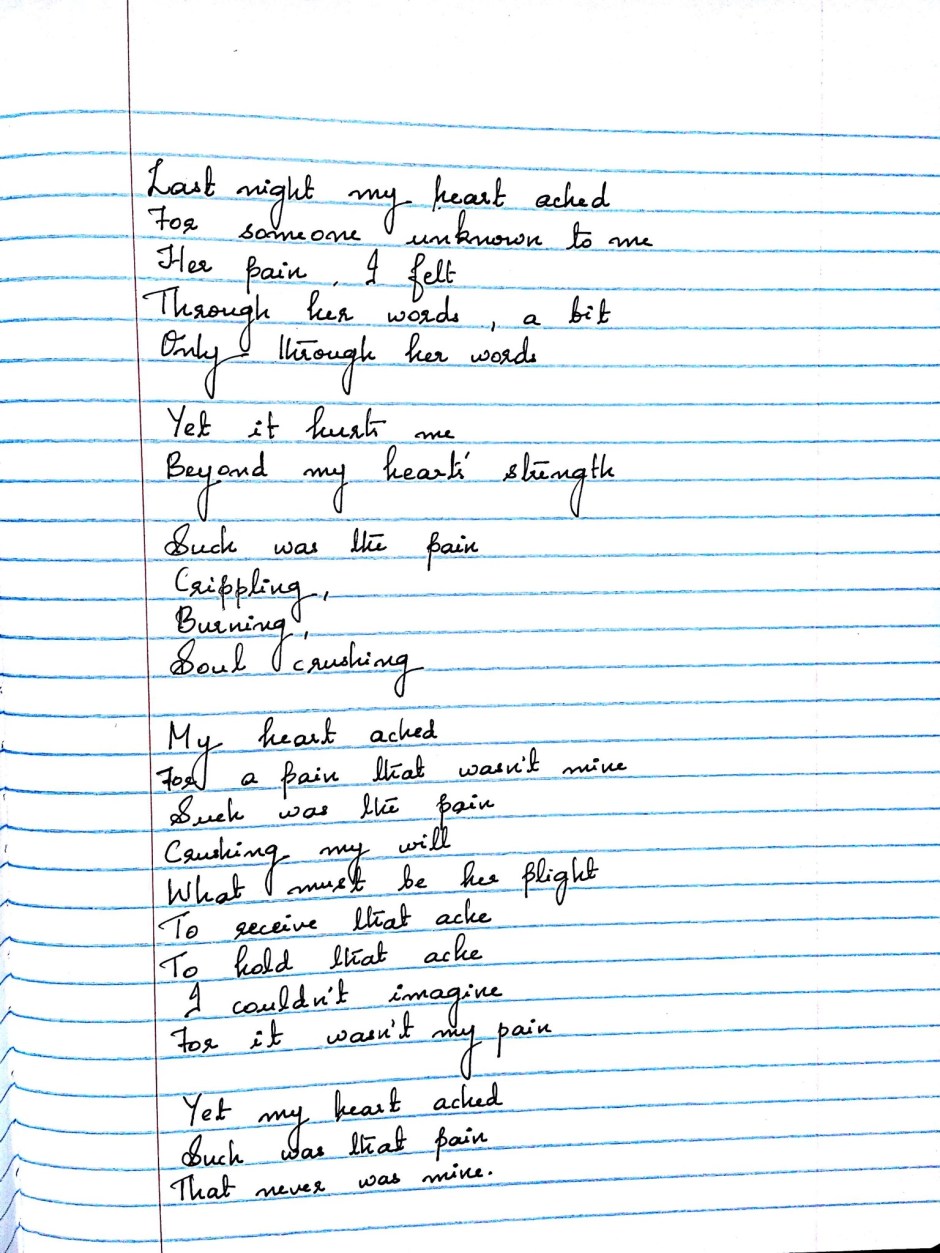 Last night my heart ached
For someone unknown to me
Her pain, I felt
Through her words, a bit
Only through her words
Yet it hurts me
Beyond my hearts' strength
Such was the pain
Crippling,
Burning,
Soul crushing
My heart ached
For a pain that wasn't mine
Such was the pain
Crushing my will
What must be her plight
To receive that ache
To hold that ache
I couldn't imagine
For it wasn't my pain
Yet my heart ached
Such was that pain
That never was mine.